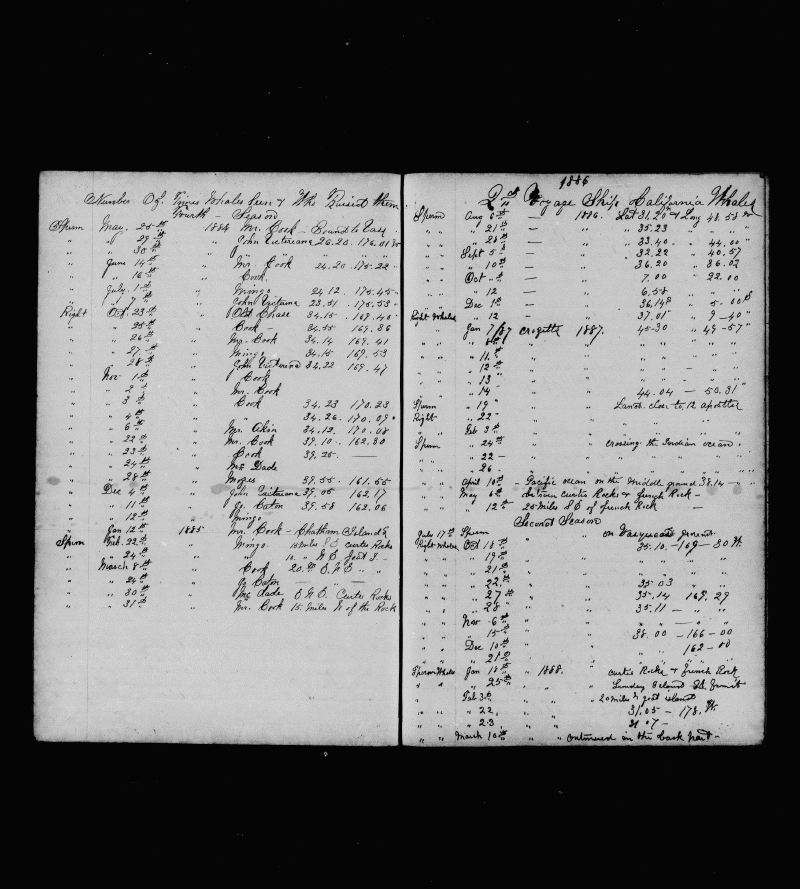 Number Of Times Whales Seen & Who Raised them
Fourth - Season
Sperm May. 25th 1884 Mr. Cook - Bound to East
" " 29th " John 26.20. 176.01
" " 30th " " "
" June 14th " Mr. Cook 24.20. 175.22 "
" " 16th " Cook
" July. 1st " Mingo 24.12. 175.45 "
" " 7th " John 23.51. 175.53 "
Right Oct. 23th " Old Chase 34.15. 169.40
" " 25th " Cook - 34.55 169.36
" " 26th " Mr. Cook 34.14 169.41
" " 27th " Mingo 34.15 169.53
" " 28th " John 34.22 169.47
" Nov 1st " Cook
" " 2nd " Mr. Cook
" " 3th " Cook 34.23 170.23
" " 4th " " 34.26. 170.09 "
" " 6th " Mr. Akin 34.12. 170.08
" " 22th " Mr. Cook 39.10. 162.30
" " 23th " Cook 39.25. —
" " 24th " Mc Dade
" " 28th " Moges 39.55. 161.55
" Dec 4th " John 39.05 162.17
" " 11th " Jo. Eaton 39.58 162.06
" " 12th " Mingo
" Jan 12th 1885 Mr. Cook - Chatham Island
Sperm Feb. 22th " Mingo. 15 miles S.E. Curtis Rocks
" " 24th " " 10. " N.E. Goat I -
" March 8th " Cook 20. E.N.E. " "
" " 24th " Jo Eaton — —
" " 30th " Mc Dade E.N.E. Curtis Rocks
" " 31th " Mr. Cook 15 miles N of the Rock
1886
2nd Voyage Ship California Whales
Sperm Aug 6th — 1886. Lat 31.20 & Long 48.58
" " " 21th — " 35.23 " "
" " " 28th — " 33.40. - 44.00 "
" " Sept 5th — " 32.22 - 40.57
" " " 10th — " 36.20 - 36.02
" " Oct - th — " 7.00 - 22.00
" " " 12 — " 6.58 "
" " Dec 1st — " 36.148 - 5.00
Right Whales " 12 — " 37.01 - 9-40 "
" " Jan 7/87 crozette 1887. 45-30 - 49-57 "
" " " 8th " "
" " " 11th " "
" " " 12th " "
" " " 13 " "
" " " 14 " " 44.04 — 50.31 "
Sperm " 19 " " Land. close to 12 apostles
Right " 22 " "
" " Feb 3th " "
Sperm " 24th " " crossing the Indian ocean.
" " " 22 - " "
" " " 26 " "
" " April 10th - Pacific ocean on the Middle ground 38.14 —
" " May 6th between curtis Rocks & french Rock -
" " " 12th 25 miles S.E of french Rock —
Second Season
July 17th Sperm " on ground
Right Whales Oct 18th " " 35.10. - 169 - 30 W.
" " " 19th " "
" " " 21th " "
" " " 22th " " 35.03
" " " 27th " " 35.14 169.29
" " " 28 " " 35.11 — " "
" " Nov 6th " "
" " " 15th " " 38.00 - 166-00
" " Dec 10th " " 162-00
" " " 21th " "
Sperm Whales Jan 18th " 1888. curtis Rocks & french Rock
" " " 25th " " Sunday Island
" Feb 3th " " 20 miles goat island
" " " 22, " " 31.05 - 178. W.
" " " 23. " " 31 07 -
" " March 10th " " continued in the back part -